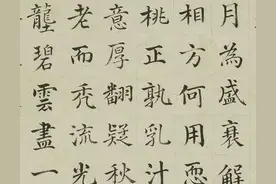 月為盛衰解
相方何用
桃正孰乳汁
意厚翻疑秋
老而禿流光
壟碧雲盡一